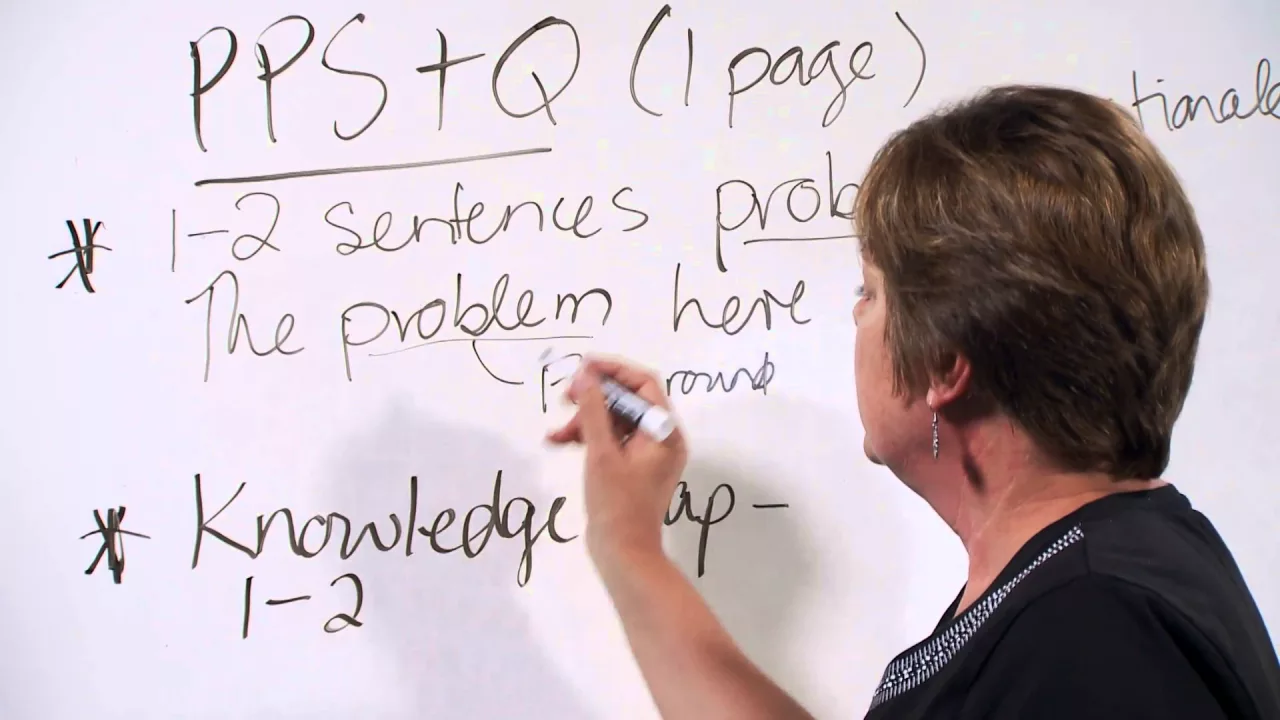 PPS + Q (1 page)
tionale
1-2 sentences prob
The problem here
round
Knowledge ap -
1-2